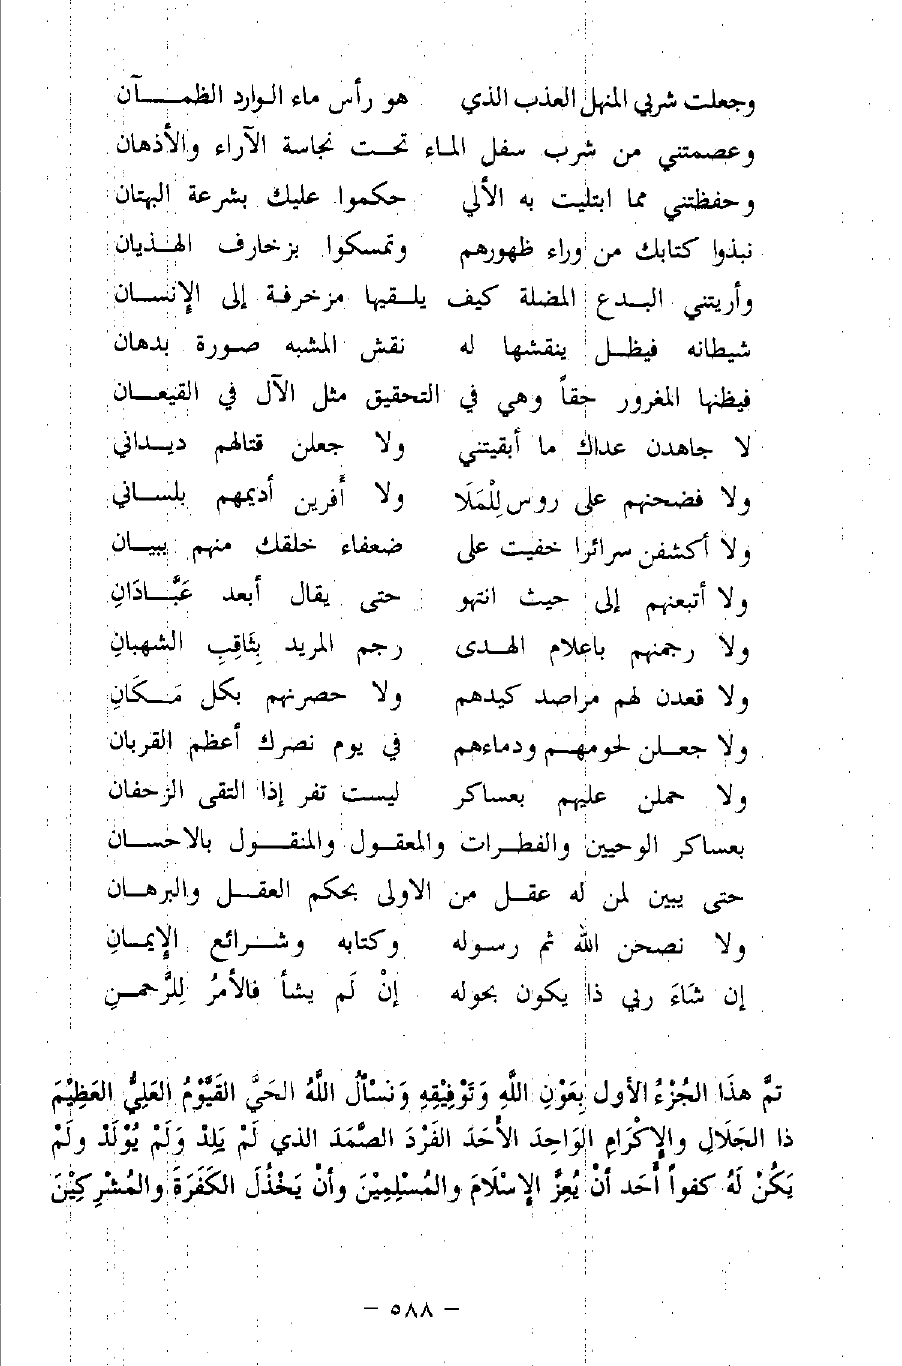 وجعلت شربي المنهل العذب الذي هو رأس ماء الوارد الظمآن
وعصمتني من شرب سفل الماء تحت نجاسة الآراء والأذهان
وحفظتني مما ابتليت به الألي حكموا عليك بشرعة البهتان
نبذوا كتابك من وراء ظهورهم وتمسكوا بزخارف الهذيان
وأريتني البدع المضلة كيف يلقيها مزخرفة إلى الإنسان
شيطانه فيظل ينقشها له نقش المشبه صورة بدهان
فيظنها المغرور حقاً وهي في التحقيق مثل الآل في القيعان
لا جاهدن عداك ما أبقيتني ولا جعلن قتالهم ديداني
ولا فضحنهم على روس لِلْمَلَا ولا أَفرين أديمهم بلساني
ولا أكشفن سرائرا خفيت على ضعفاء خلقك منهم ببيان
ولا أتبعنهم إلى حيث انتهو حتى يقال أبعد عَبَّادَانِ
ولا رجمنهم باعلام الهدى رجم المريد بِثَاقِبِ الشهبانِ
ولا قعدن لهم مراصد كيدهم ولا حصرنهم بكل مَكَانِ
ولا جعلن لحومهم ودماءهم في يوم نصرك أعظم القربان
ولا حملن عليهم بعساكر ليست تفر إذا التقى الزحفان
بعساكر الوحيين والفطرات والمعقول والمنقول بالاحسان
حتى يبين لمن له عقل من الاولى بحكم العقل والبرهان
ولا نصحن الله ثم رسوله وكتابه وشرائع الإيمانِ
إن شَاءَ ربي ذا يكون بحوله إنْ لَم يشأ فالأمرُ لِلرَّحمنِ
تمَّ هذَا الجُزْءُ الأول بِعَوْنِ اللَّهِ وَتَوْفِيْقِهِ وَنَسْأَلُ اللَّهُ الحَيَّ القَيَّوْمُ العَلِيُّ العَظِيْمَ
ذا الجَلَالِ والإكْرَامِ الوَاحِدَ الأَحَدَ الفَرْدَ الصَّمَدَ الذي لَمْ يَلِدْ وَلَمْ يُوْلَدْ ولَمْ
يَكُنْ لَهُ كفواً أَحَد أنْ يُعِزَّ الإسْلَامَ والمُسْلِمِيْنَ وأنْ يَخْذُلَ الكَفَرَةَ والمُشْرِكِيْنَ
– ٥٨٨ –